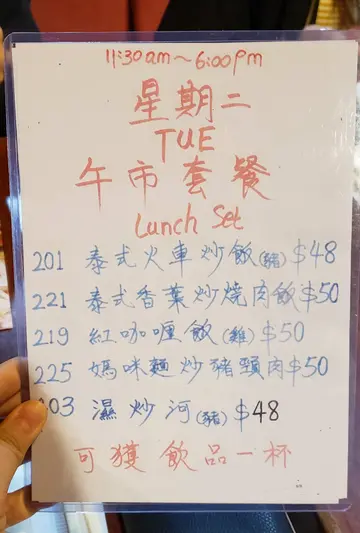 11:30am~6:00pm
星期二
TUE
午市套餐
Lunch Set
201 泰式火車炒飯(豬)$48
221 泰式香葉炒燒肉飯$50
219 紅咖喱飯(雞)$50
225 媽咪麵炒豬頸肉$50
03 濕炒河(豬)$48
可獲飲品一杯